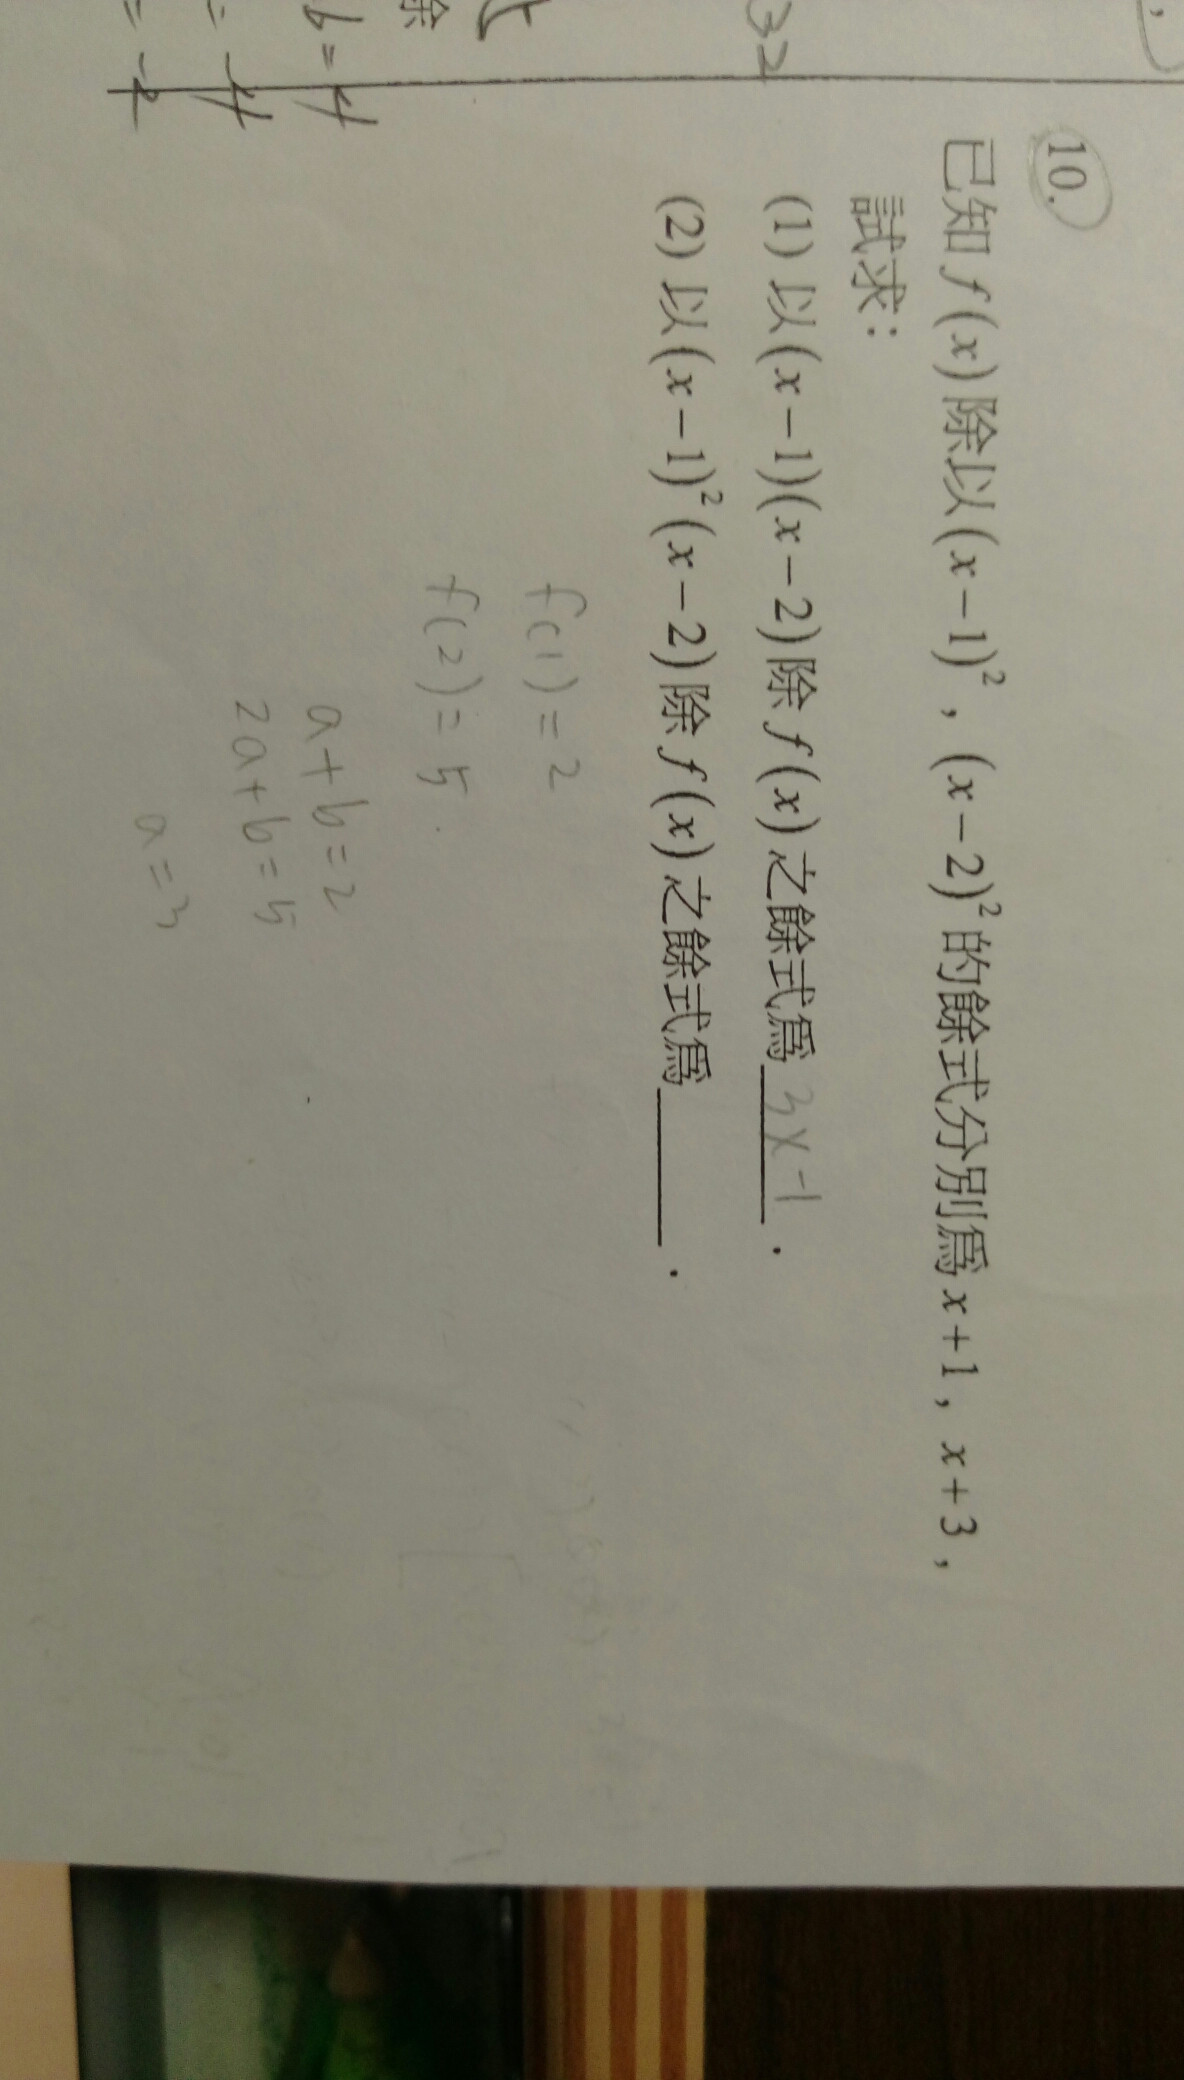 32
b=4
=-4
=-2
除
10.
已知 f(x) 除以 (x-1)²，(x-2)² 的餘式分別爲 x+1，x+3，
試求：
(1) 以 (x-1)(x-2) 除 f(x) 之餘式爲 3x-1 .
(2) 以 (x-1)² (x-2) 除 f(x) 之餘式爲______ .
f(1)=2
f(2)=5
a+b=2
2a+b=5
a=3